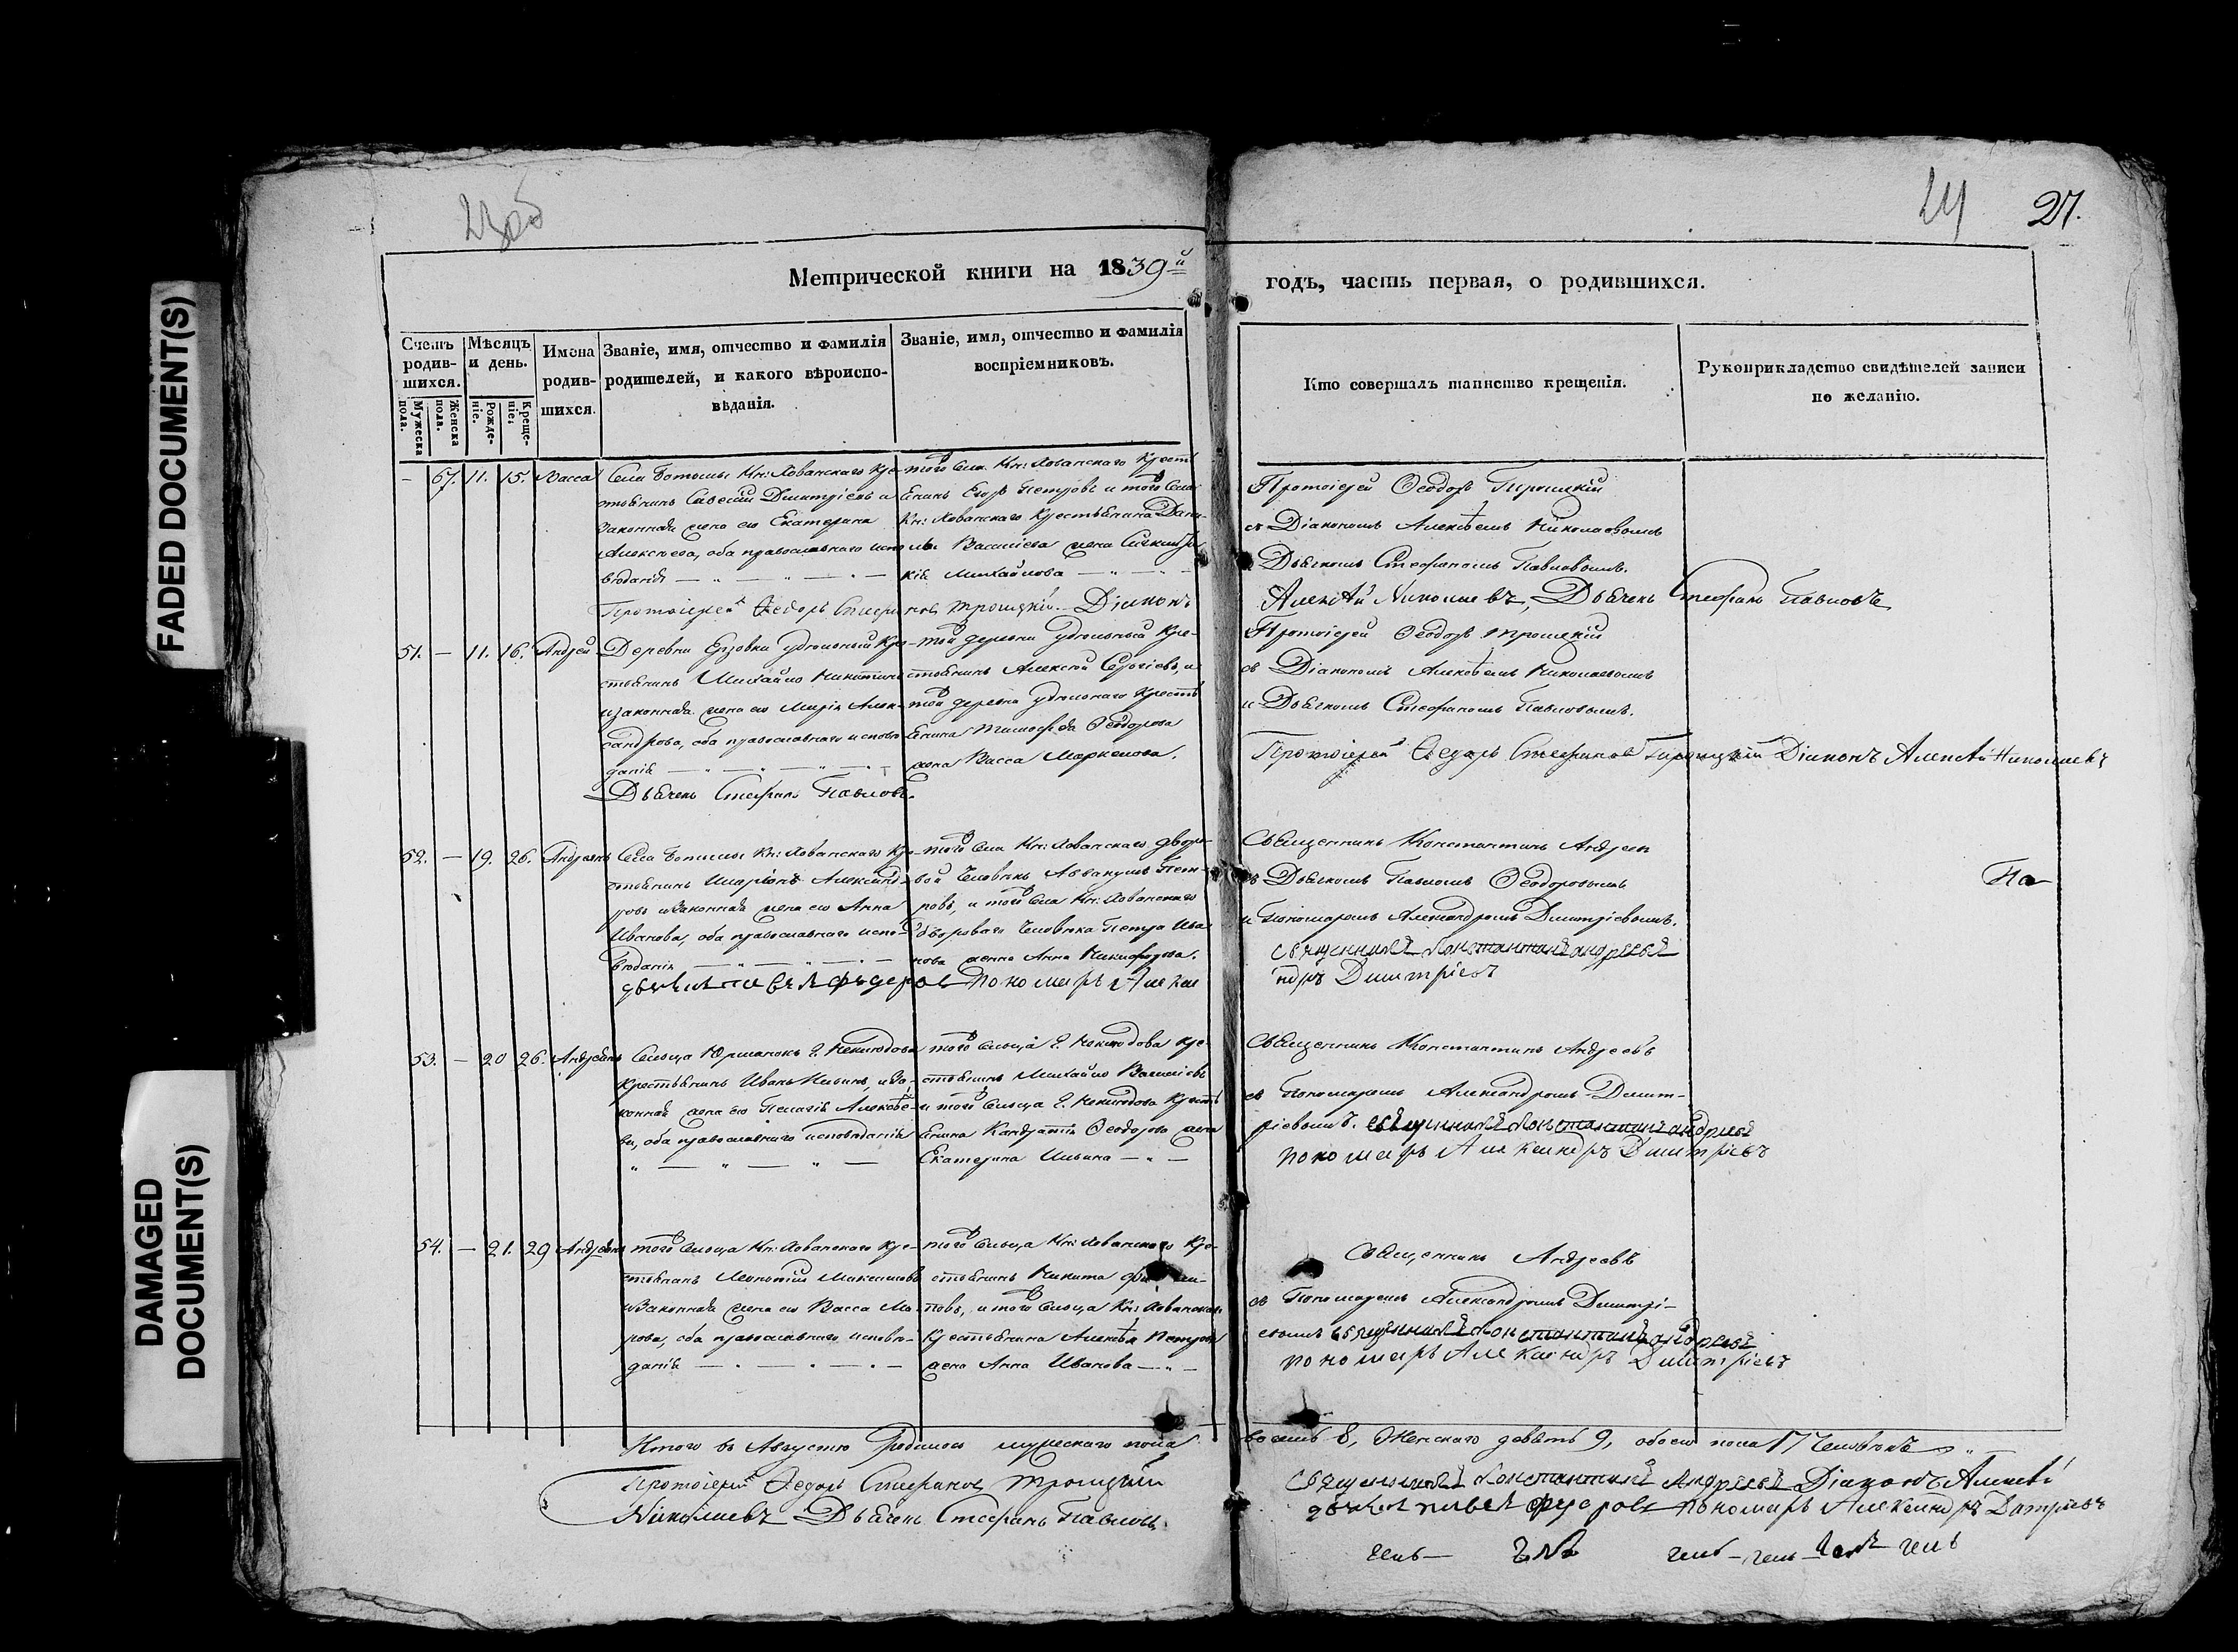 FADED DOCUMENT(S)
DAMAGED
DOCUMENT(S)
23об
24 27.
Метрической книги на 1839й
годъ, часть первая, о родившихся.
Счетъ родив-
шихся.
Мужеска
пола.
Женска
пола.
Мѣсяцъ
и день.
Рожде-
нiе.
Креще-
нiе.
Имена
родив-
шихся.
Званiе, имя, отчество и фамилiя
родителей, и какого вѣроиспо-
вѣданiя.
Званiе, имя, отчество и фамилiя
воспрiемниковъ.
Кто совершалъ таинство крещенiя.
Рукоприкладство свидѣтелей записи
по желанiю.
— 67. 11. 15. Васса
Села Ботьмы Кн: Хованскаго Кре-
стьянинъ Савелiй Димитрiевъ и
законная жена его Екатерина
Алексѣева, оба православнаго испо
вѣданiя
того села Кн: Хованскаго Кресть
янинъ Егоръ Петровъ и того села
Кн: Хованскаго Крестьянина Дани-
ла Васильева жена
Михайлова
Протоiерей Ѳеодоръ Троицкiй
съ Дiакономъ Алексѣемъ Николаевымъ
Дьячкомъ Стефаномъ Павловымъ.
Протоiерей Ѳедоръ Стефановъ Троицкiй Дiаконъ
Алексѣй Николаевъ, Дьячекъ Стефанъ Павловъ
51. — 11. 16. Андрей
Деревни Ерзовки удѣльный Кре-
стьянинъ Михайло Никитинъ
и законная жена его Марiя Алек-
сандрова, оба православнаго исповѣ
данiя
той деревни удѣльный Кре-
стьянинъ Алексѣй Сергѣевъ, и
той деревни удѣльнаго Кресть
янина Тимофея Ѳеодорова
жена Васса Маркелова.
Протоiерей Ѳеодоръ Троицкiй
съ Дiакономъ Алексѣемъ Николаевымъ
и Дьячкомъ Стефаномъ Павловымъ.
Протоiерей Ѳедоръ Стефановъ Троицкiй Дiаконъ Алексѣй Николаевъ
Дьячекъ Стефанъ Павловъ.
52. — 19. 26. Андреянъ
Села Ботьмы Кн: Хованскаго Кре-
стьянинъ Иларiонъ Александ-
ровъ и законная жена его Анна
Иванова, оба православнаго испо-
вѣданiя
того села Кн: Хованскаго дворо-
вой человѣкъ Аввакумъ Пет-
ровъ, и того села Кн: Хованскаго
двороваго человѣка Петра Ива
нова жена Анна Никифорова.
Священникъ Константинъ Андреевъ
съ Дьячкомъ Павломъ Ѳеодоровымъ
и Пономаремъ Александромъ Димитрiевымъ.
священникъ Константинъ андреевъ
дьячекъ павелъ федоровъ пономарь Алекса
ндръ Дмитрiевъ
По
53. — 20 26. Андреянъ
Сельца Юрманокъ Г. Неклюдова
Крестьянинъ Иванъ Ильинъ, и за-
конная жена его Пелагiя Алексѣе-
ва, оба православнаго исповѣданiя
того сельца Г. Неклюдова Кре-
стьянинъ Михайло Васильевъ
и того сельца Г. Неклюдова Кресть
янина Кондратiя Ѳеодорова жена
Екатерина Ильина
Священникъ Константинъ Андреевъ
съ Пономаремъ Александромъ Димит-
рiевымъ. священникъ Константинъ андреевъ
пономарь Александръ Дмитрiевъ
54. — 21. 29 Андреянъ
того сельца Кн: Хованскаго Кре-
стьянинъ Мелентiй Максимовъ
и законная жена его Васса
рова, оба православнаго исповѣ-
данiя
того сельца Кн: Хованскаго Кре-
стьянинъ Никита
повъ, и того сельца Кн: Хованскаго
Крестьянина Алексѣя Петрова
жена Анна Иванова
Священникъ Андреевъ
съ Пономаремъ Александромъ Димитрi-
евымъ священникъ Константинъ андреевъ
пономарь Александръ Дмитрiевъ
Итого въ Августѣ родилось мужескаго пола
восемь 8, Женскаго девять 9, обоего пола 17 человѣкъ
Протоiерей Ѳедоръ Стефановъ Троицкiй
священникъ Константинъ Андреевъ Дiаконъ Алексѣй
Николаевъ Дьячекъ Стефанъ Павловъ.
дьячекъ павелъ федоровъ пономарь Александръ Дмтрiевъ